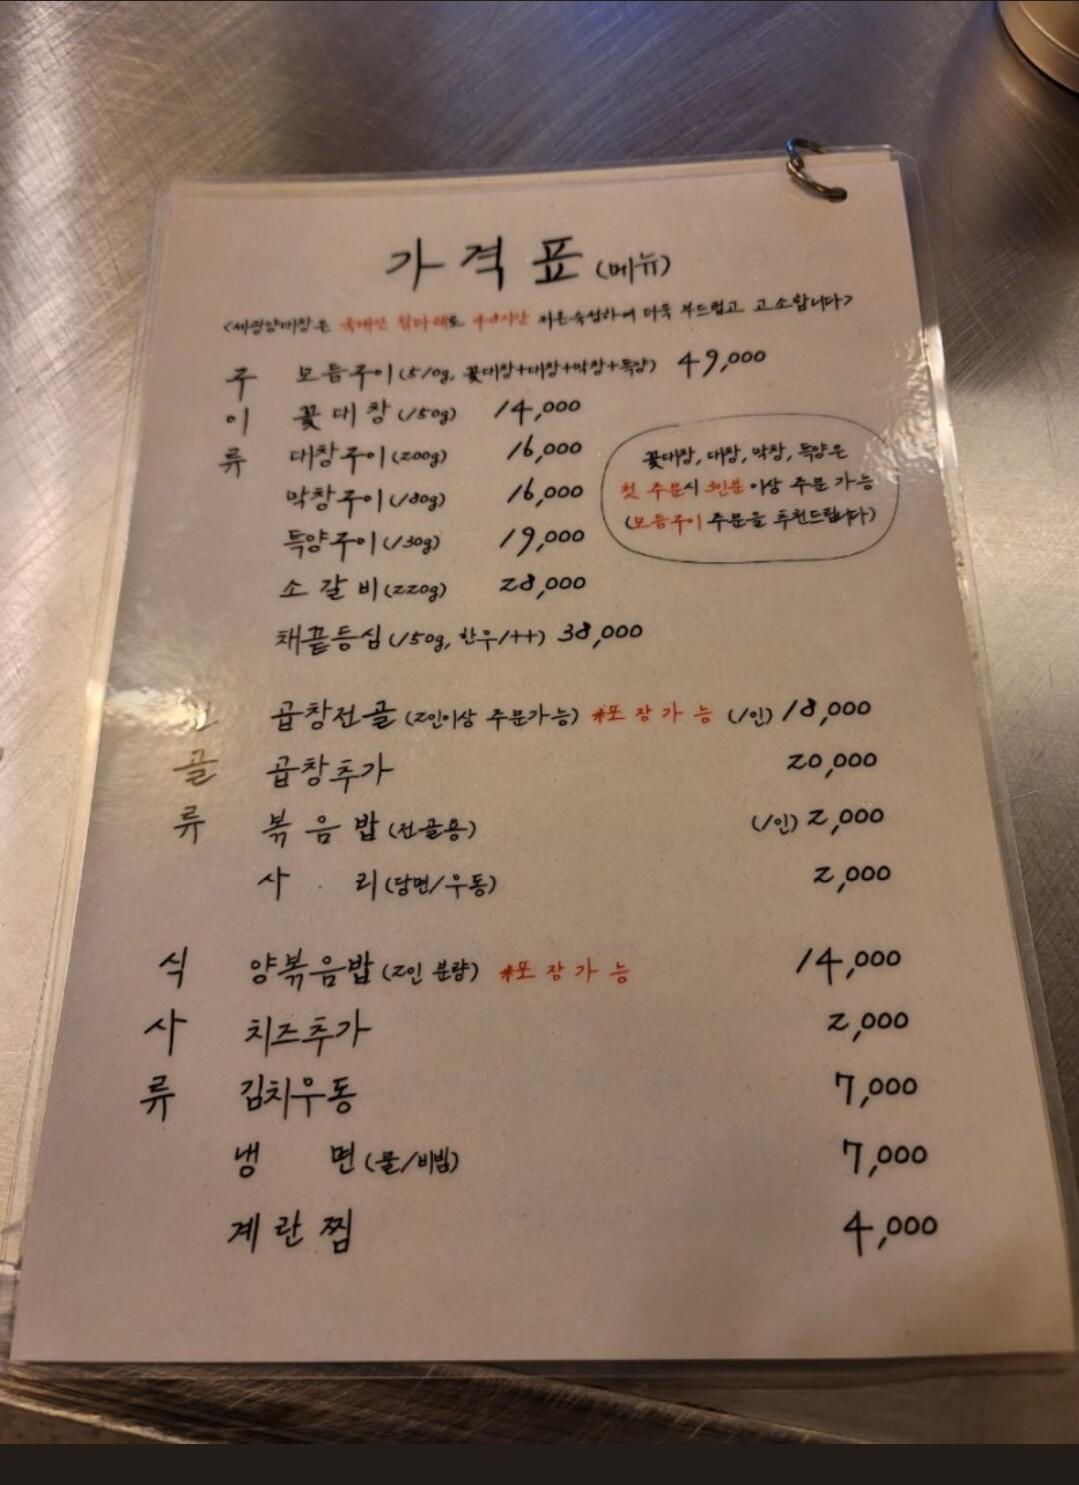 가격표 (메뉴)
양대창은 국내산 참다래로 48시간 저온숙성하여 더욱 부드럽고 고소합니다>
구 모듬구이 (510g, 꽃대창+대창+막창+특양) 49,000
이 꽃대창 (150g) 14,000
류 대창구이 (200g) 16,000
막창구이 (180g) 16,000
특양구이 (130g) 19,000
소갈비 (220g) 28,000
채끝등심 (150g, 한우1++) 38,000
꽃대창, 대창, 막창, 특양은
첫 주문시 3인분 이상 주문 가능
(모듬구이 주문을 추천드립니다)
전 곱창전골 (2인이상 주문가능) #포장가능 (1인) 18,000
골 곱창추가 20,000
류 볶음밥 (전골용) (1인) 2,000
사리 (당면/우동) 2,000
식 양볶음밥 (2인 분량) #포장가능 14,000
사 치즈추가 2,000
류 김치우동 7,000
냉면 (물/비빔) 7,000
계란찜 4,000